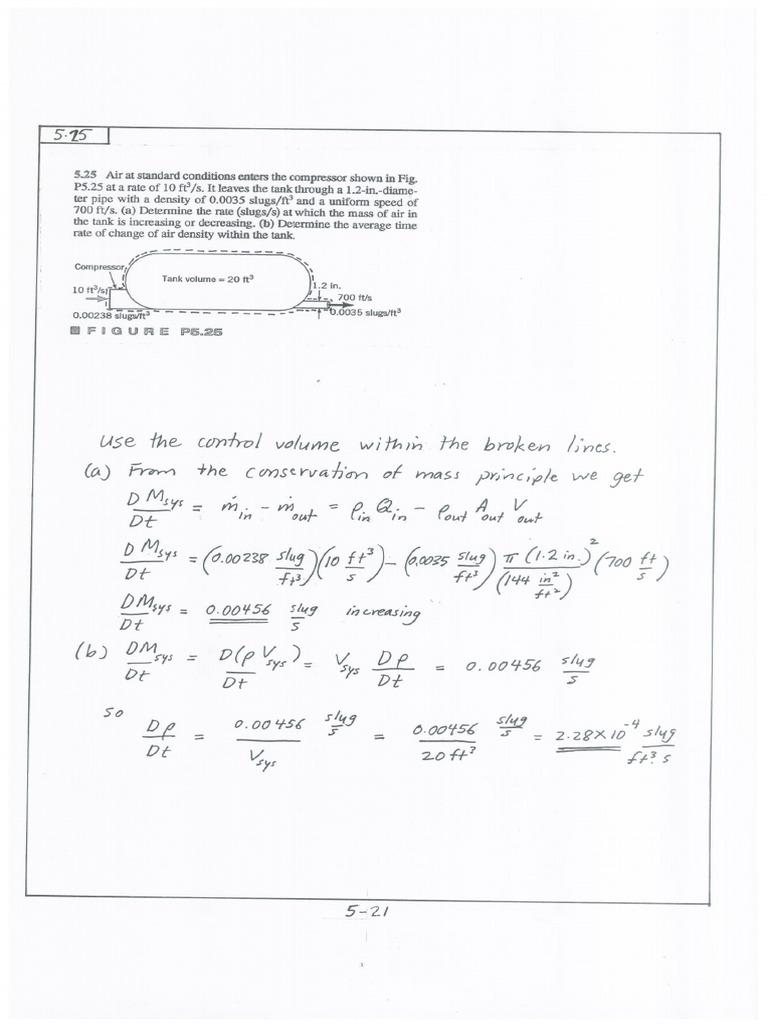 5.25
5.25 Air at standard conditions enters the compressor shown in Fig.
P5.25 at a rate of 10 ft³/s. It leaves the tank through a 1.2-in.-diame-
ter pipe with a density of 0.0035 slugs/ft³ and a uniform speed of
700 ft/s. (a) Determine the rate (slugs/s) at which the mass of air in
the tank is increasing or decreasing. (b) Determine the average time
rate of change of air density within the tank.
Compressor
Tank volume = 20 ft³
10 ft³/s
1.2 in.
700 ft/s
0.00238 slugs/ft³
0.0035 slugs/ft³
FIGURE P5.25
Use the control volume within the broken lines.
(a) From the conservation of mass principle we get
DM_sys/Dt = ṁ_in - ṁ_out = ρ_in Q_in - ρ_out A_out V_out
DM_sys/Dt = (0.00238 slug/ft³)(10 ft³/s) - (0.0035 slug/ft³) π(1.2 in.)²/(144 in²/ft²) (700 ft/s)
DM_sys/Dt = 0.00456 slug/s increasing
(b) DM_sys/Dt = D(ρ V_sys)/Dt = V_sys Dρ/Dt = 0.00456 slug/s
so
Dρ/Dt = 0.00456 slug/s / V_sys = 0.00456 slug/s / 20 ft³ = 2.28 X 10⁻⁴ slug/ft³. s
5-21